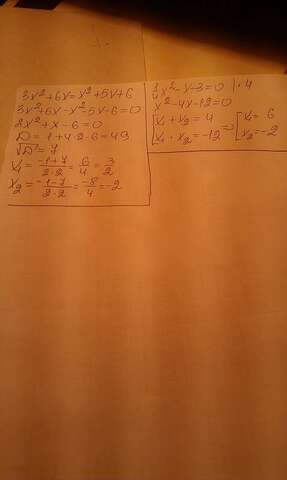 3x²+6x=x²+5x+6
3x²+6x-x²-5x-6=0
2x²+x-6=0
D=1+4·2·6=49
√D=7
x₁=(-1+7)/(2·2)=6/4=3/2
x₂=(-1-7)/(2·2)=-8/4=-2
1/4x²-x-3=0 |·4
x²-4x-12=0
[x₁+x₂=4 => [x₁=6
x₁·x₂=-12 x₂=-2